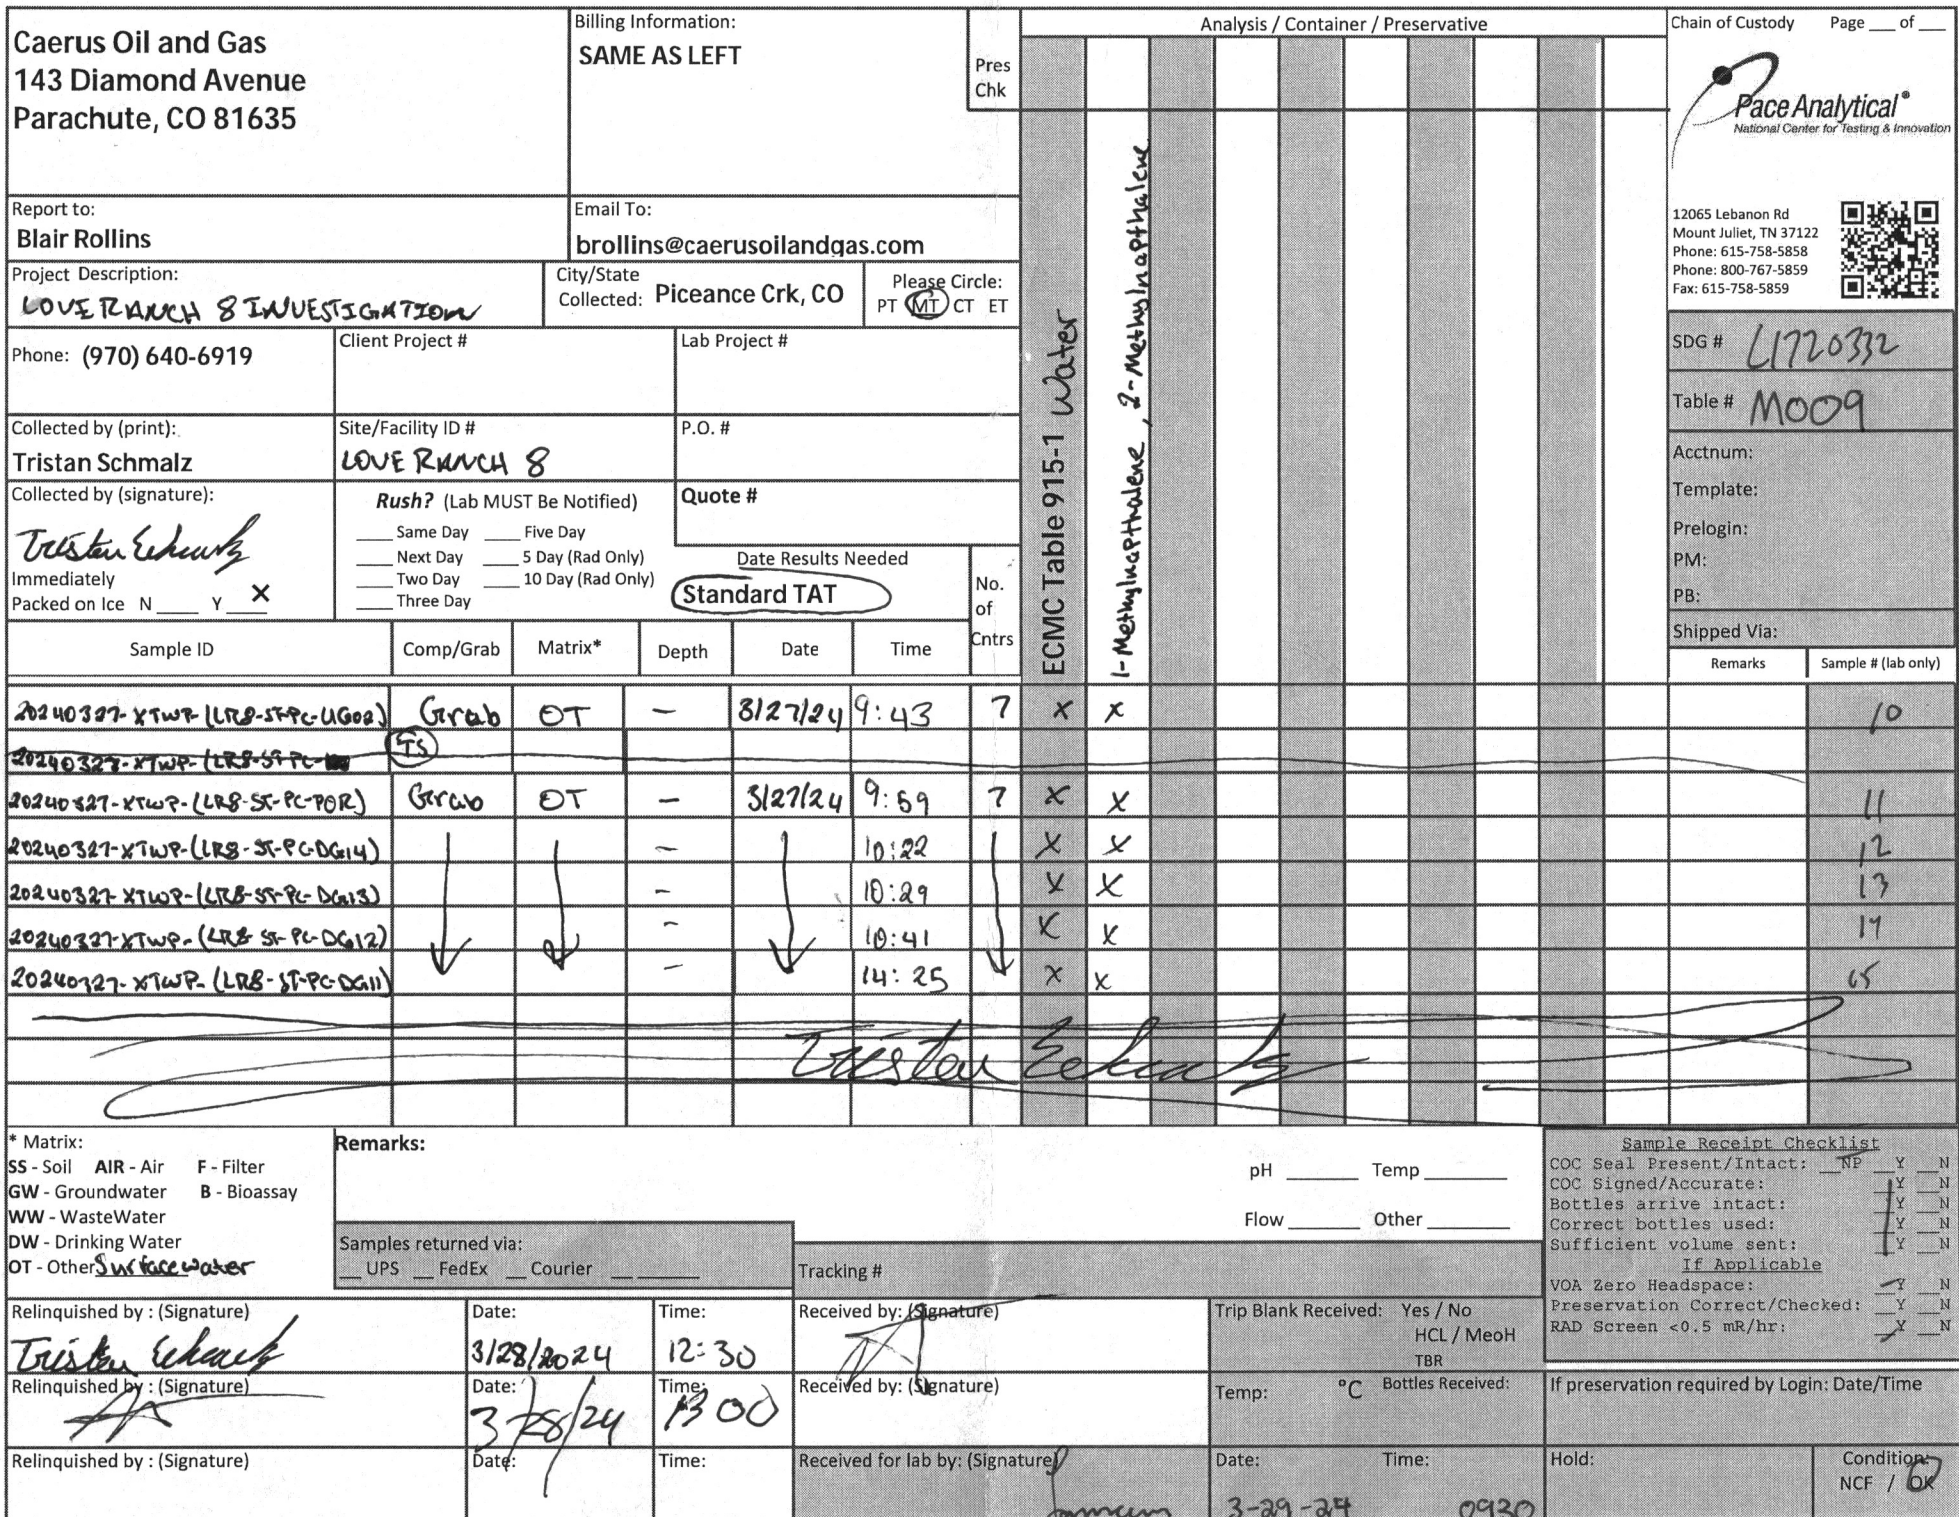 Caerus Oil and Gas
143 Diamond Avenue
Parachute, CO 81635
Billing Information:
SAME AS LEFT
Pres
Chk
Analysis / Container / Preservative
Chain of Custody Page ___ of ___
Pace Analytical®
National Center for Testing & Innovation
12065 Lebanon Rd
Mount Juliet, TN 37122
Phone: 615-758-5858
Phone: 800-767-5859
Fax: 615-758-5859
Report to:
Blair Rollins
Email To:
brollins@caerusoilandgas.com
Project Description:
LOVE RANCH 8 INVESTIGATION
City/State
Collected: Piceance Crk, CO
Please Circle:
PT MT CT ET
Phone: (970) 640-6919
Client Project #
Lab Project #
SDG # L1720332
Table # M009
Collected by (print):
Tristan Schmalz
Site/Facility ID #
LOVE RANCH 8
P.O. #
Acctnum:
Template:
Prelogin:
PM:
PB:
Shipped Via:
Collected by (signature):
Immediately
Packed on Ice N ____ Y ____ X
Rush? (Lab MUST Be Notified)
____ Same Day ____ Five Day
____ Next Day ____ 5 Day (Rad Only)
____ Two Day ____ 10 Day (Rad Only)
____ Three Day
Quote #
Date Results Needed
Standard TAT
No.
of
Cntrs
ECMC Table 915-1 Water
1-Methylnapthalene, 2-Methylnapthalene
Sample ID Comp/Grab Matrix* Depth Date Time Remarks Sample # (lab only)
20240327-XTWP-(LR8-ST-PC-UG02) Grab OT – 3/27/24 9:43 7 X X 10
20240327-XTWP-(LR8-ST-PC- TS
20240327-XTWP-(LR8-ST-PC-POR) Grab OT – 3/27/24 9:59 7 X X 11
20240327-XTWP-(LR8-ST-PC-DG14) – 10:22 X X 12
20240327-XTWP-(LR8-ST-PC-DG13) – 10:29 X X 13
20240327-XTWP-(LR8-ST-PC-DG12) – 10:41 X X 14
20240327-XTWP-(LR8-ST-PC-DG11) – 14:25 X X 15
* Matrix:
SS - Soil AIR - Air F - Filter
GW - Groundwater B - Bioassay
WW - WasteWater
DW - Drinking Water
OT - Other Surface water
Remarks:
pH ______ Temp ______
Flow ______ Other ______
Samples returned via:
__ UPS __ FedEx __ Courier __ ______
Tracking #
Sample Receipt Checklist
COC Seal Present/Intact: __NP __Y __N
COC Signed/Accurate: __Y __N
Bottles arrive intact: __Y __N
Correct bottles used: __Y __N
Sufficient volume sent: __Y __N
If Applicable
VOA Zero Headspace: __Y __N
Preservation Correct/Checked: __Y __N
RAD Screen <0.5 mR/hr: __Y __N
Relinquished by : (Signature)
Date:
3/28/2024
Time:
12:30
Received by: (Signature)
Trip Blank Received: Yes / No
HCL / MeoH
TBR
Relinquished by : (Signature)
Date:
3/28/24
Time:
1300
Received by: (Signature)
Temp: °C Bottles Received:
If preservation required by Login: Date/Time
Relinquished by : (Signature)
Date:
Time:
Received for lab by: (Signature)
Date:
3-29-24
Time:
0930
Hold:
Condition:
NCF / OK